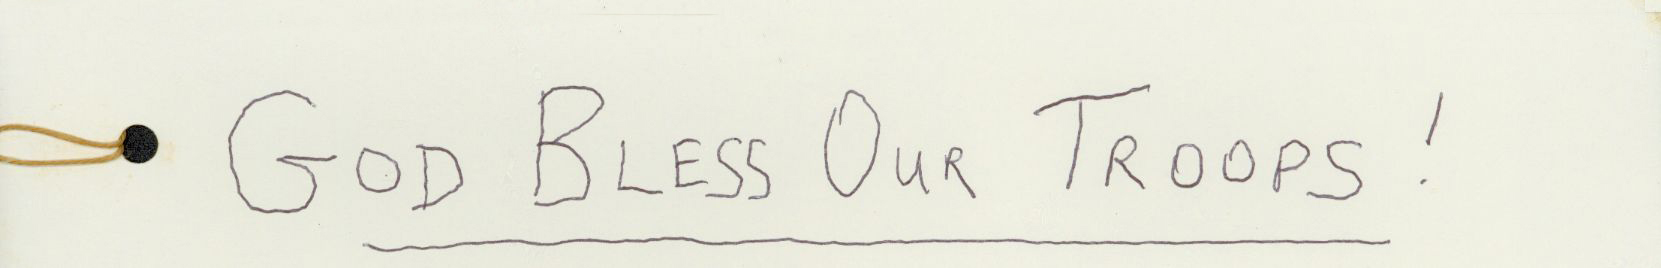 GOD BLESS OUR TROOPS!